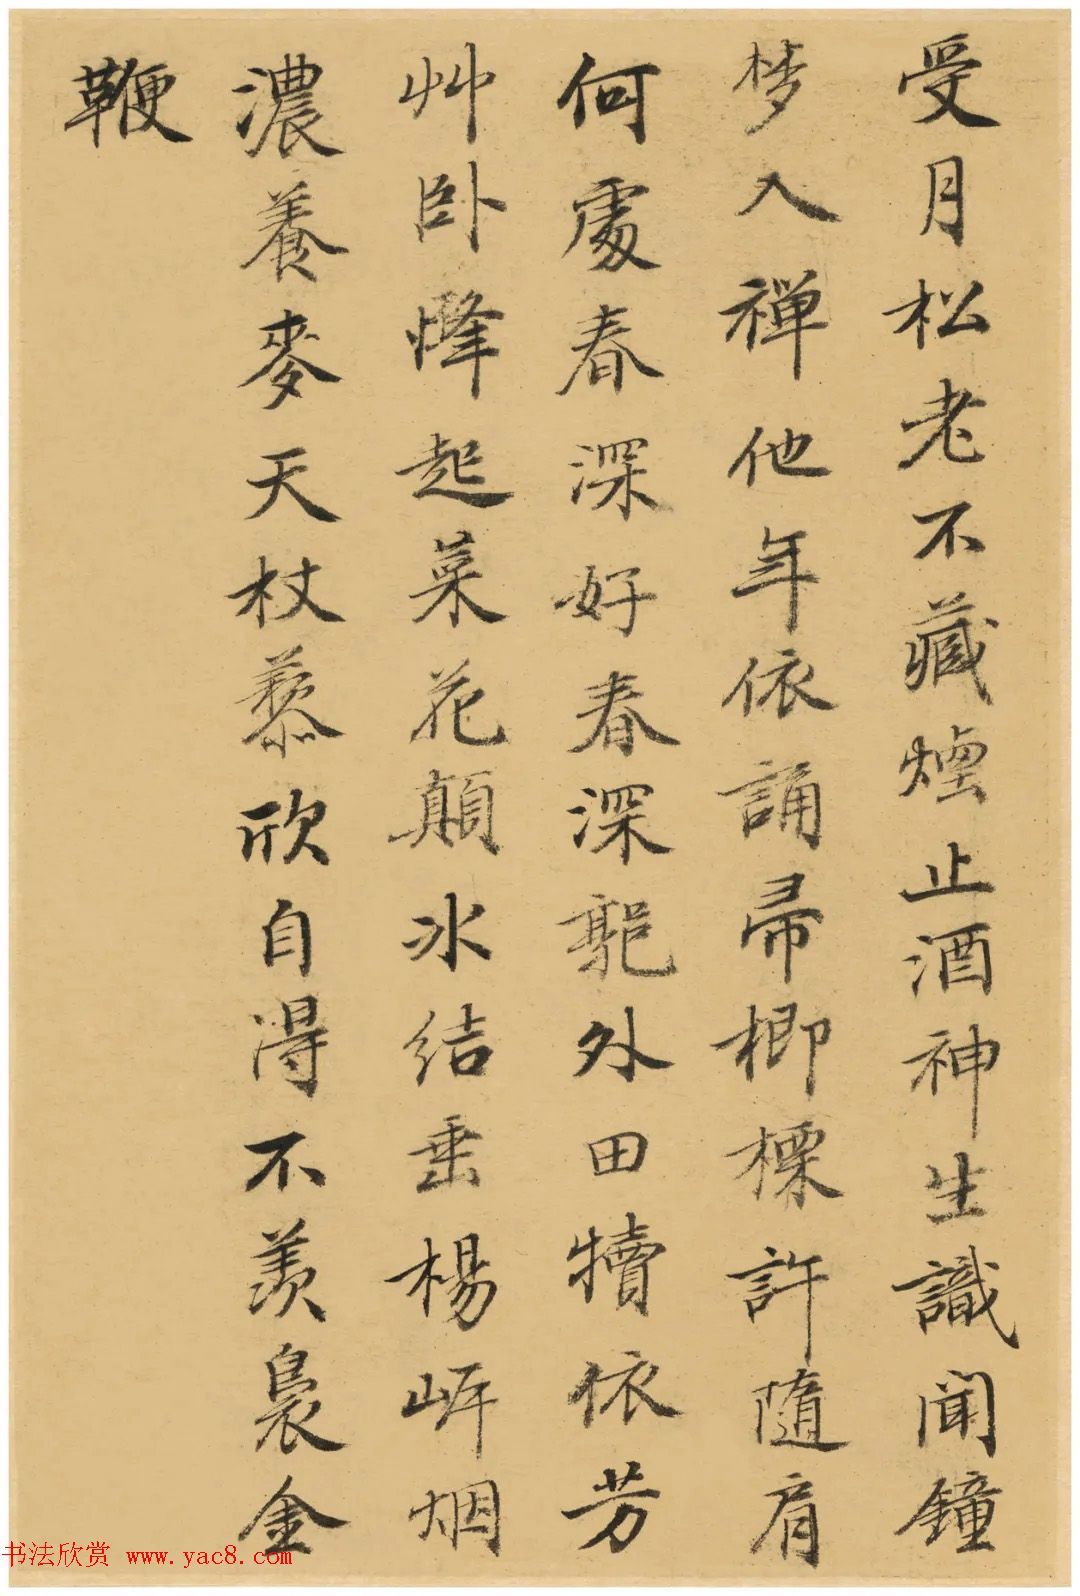 受月松老不藏煙止酒神生識聞鐘
梦入禅他年依誦帚楖樏許隨肩
何處春深好春深郭外田犢依芳
艸卧烽起菜花顛冰结垂楊岍烟
濃養麥天杖藜欣自得不羨裊金
鞭
书法欣赏 www.yac8.com